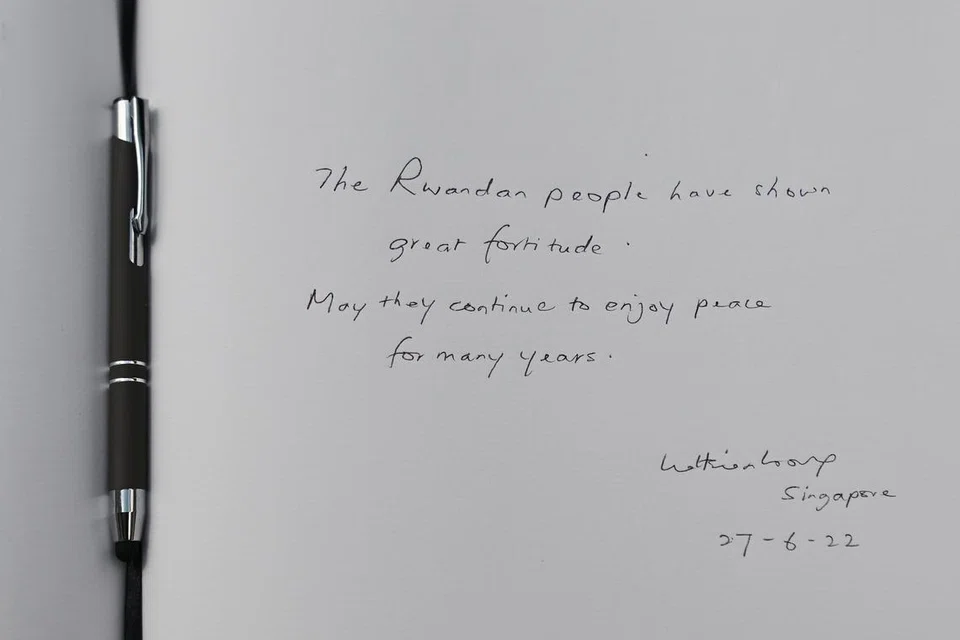 The Rwandan people have shown
great fortitude.
May they continue to enjoy peace
for many years.
Singapore
27-6-22